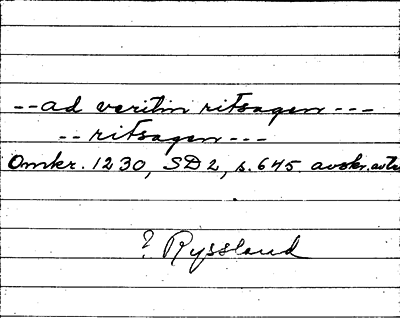 --ad veritin ritsagen---
--ritsagen---
Omkr. 1230, SD2, s. 645. avskr.
? Ryssland